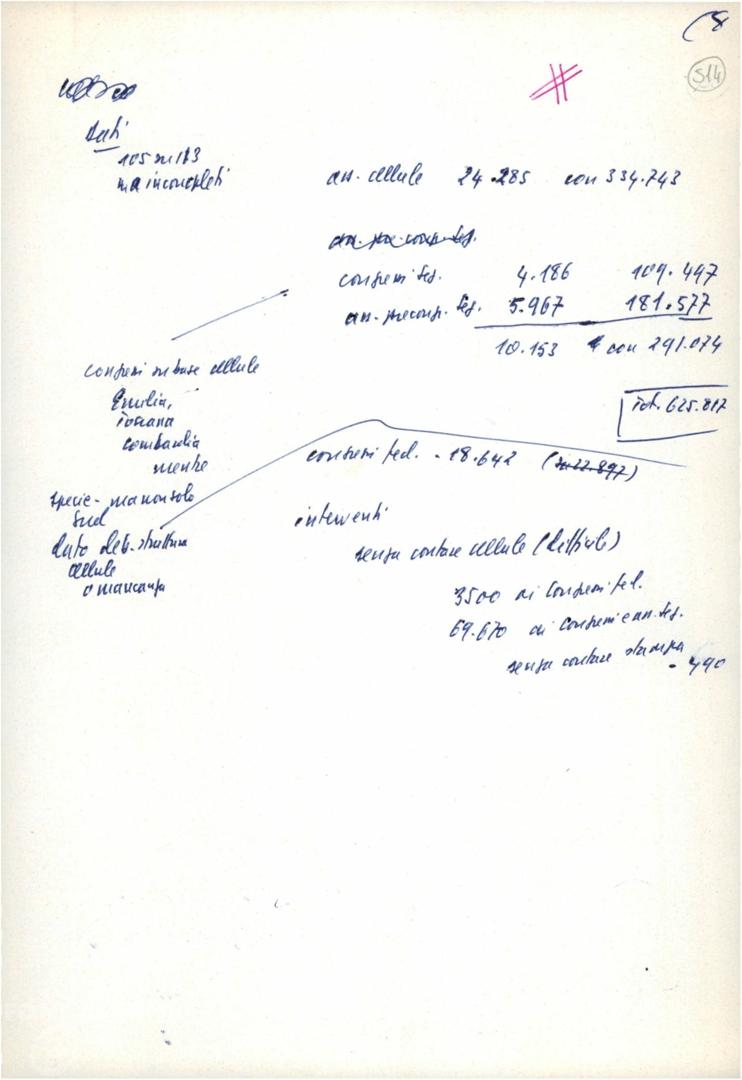 (8
514
Dati
105 su 113
ma incompleti
ass. cellule 24.285 con 334.743
congressi sez. 4.186 109.497
ass. precongr. sez. 5.967 181.577
10.153 con 291.074
Tot. 625.817
congressi su base cellule
Emilia,
Toscana
Lombardia
mentre
specie - ma non solo
Sud
dato deb. struttura
cellule
o mancanza
congressi fed. - 18.642 (su 22.897)
interventi
senza contare cellule (difficile)
3500 ai Congressi fed.
69.670 ai Congressi e ass. sez.
senza contare stampa
- 490